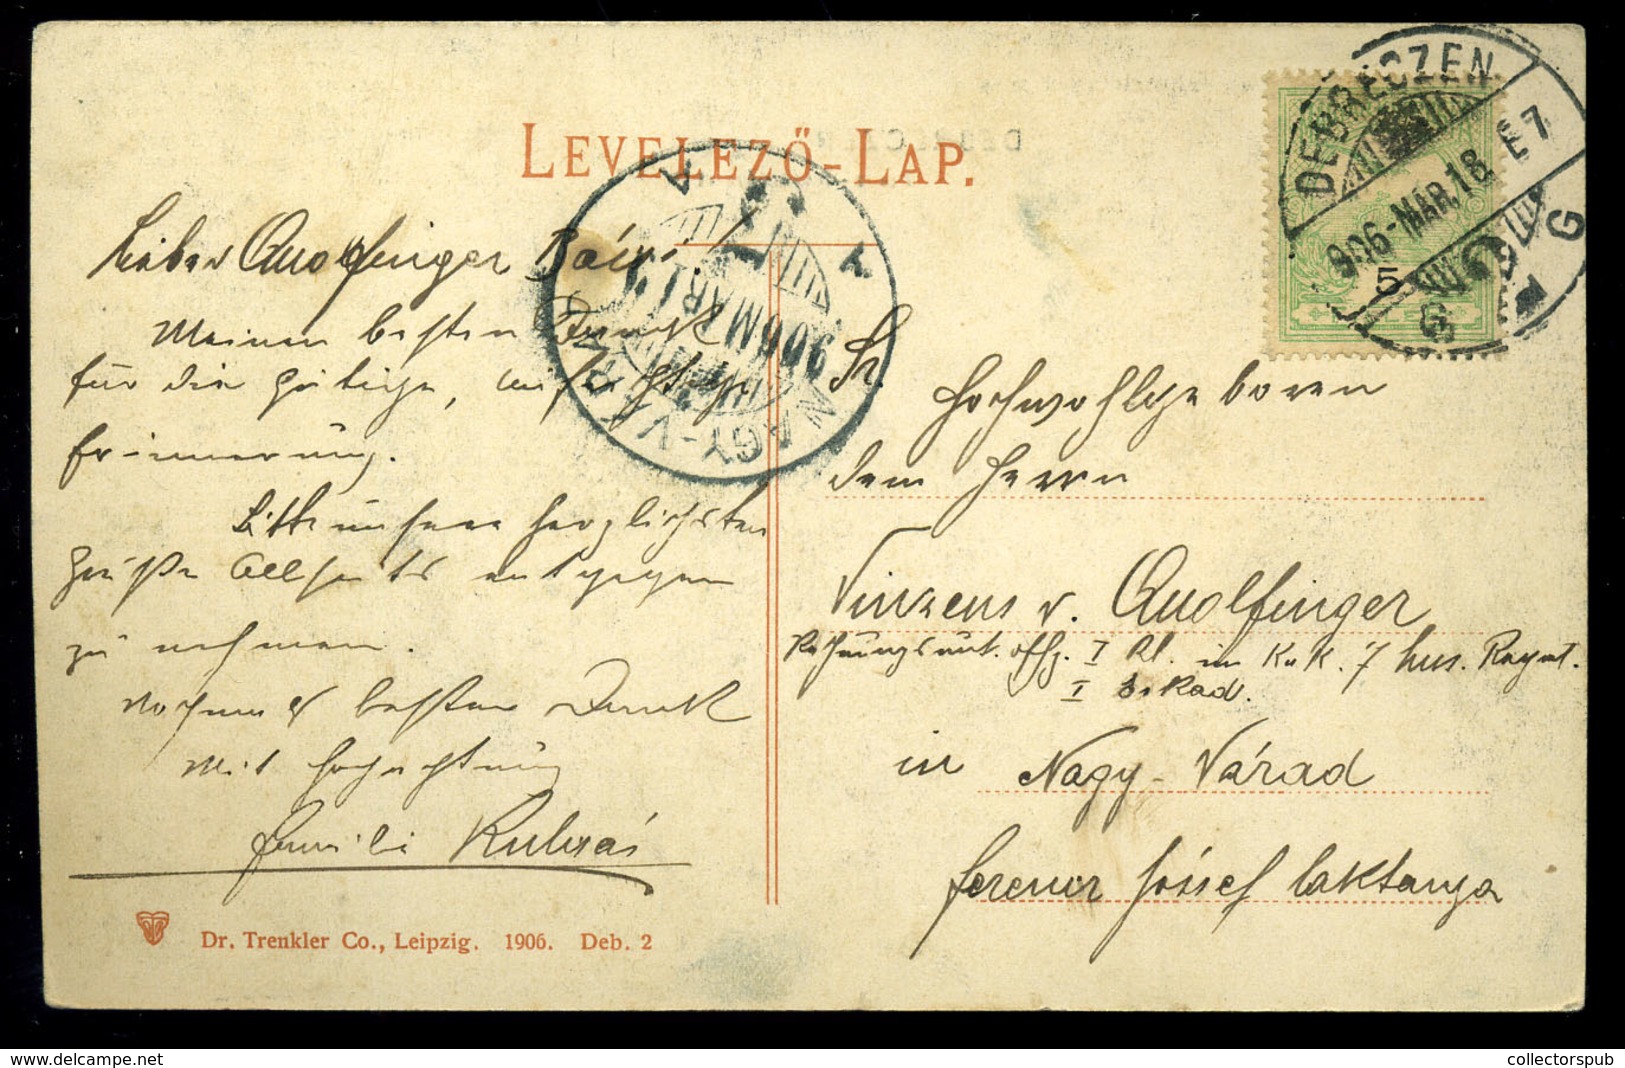 LEVELEZŐ-LAP.
DEBRECZEN
906-MÁR.18. E 7
G
5
NAGY-VÁRAD
906 MÁR 1
Lieber Quolfinger Báci!
Meinen besten Dank
für die gütige,
Erinnerung.
Bitte unsere herzlichsten
Grüße Allseits entgegen
zu nehmen.
Nochmals besten Dank
Mit Hochachtung
Familie
Sr.
Hochwohlgeboren
dem Herrn
Vinzens v. Quolfinger
Rechnungsunt. offz. I Kl. im K.u.K. 7 hus. Regmt.
I
in Nagy-Várad
ferencz József laktanya
Dr. Trenkler Co., Leipzig. 1906. Deb. 2
www.delcampe.net
collectorspub